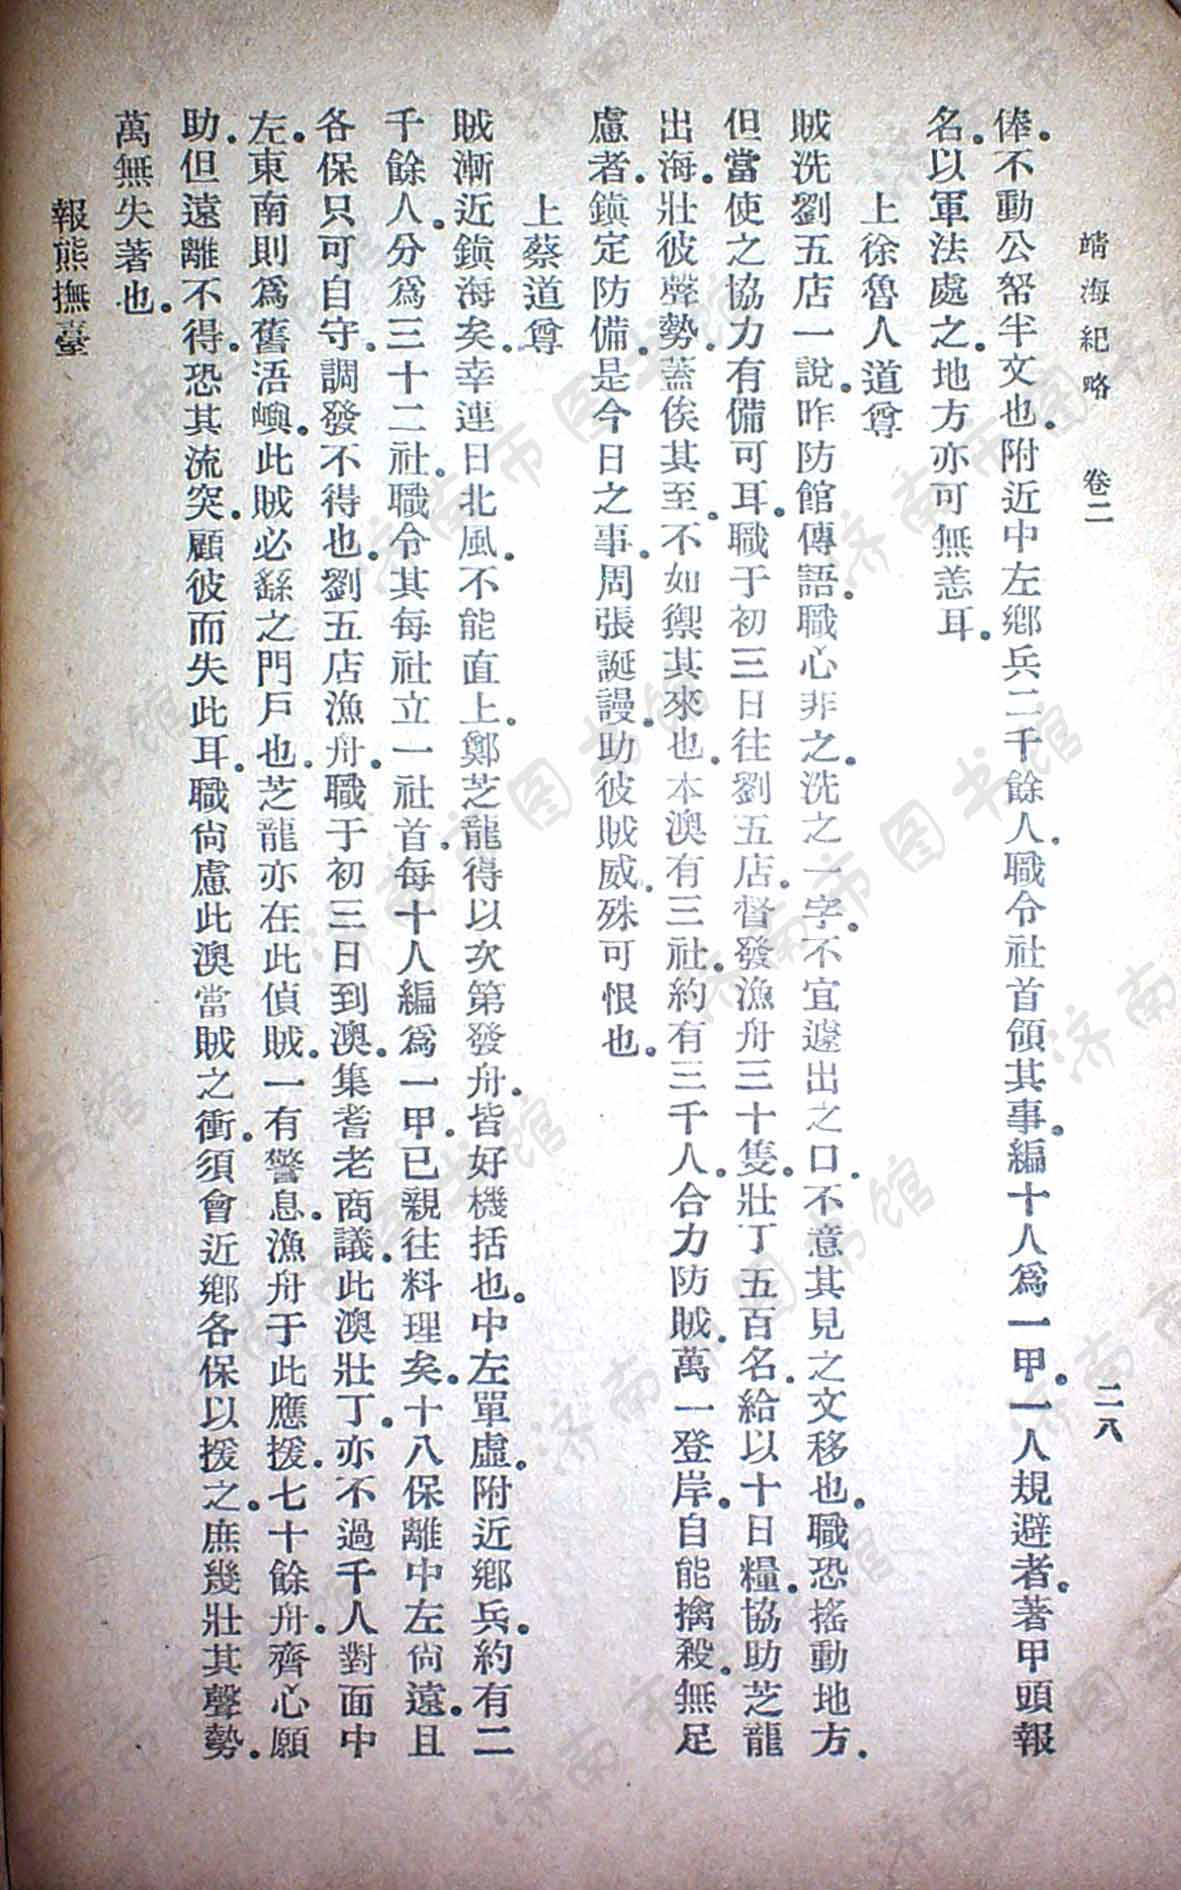 靖海紀略　卷二　二八
俸。不動公帑半文也。附近中左鄉兵二千餘人。職令社首領其事。編十人爲一甲。一人規避者。著甲頭報
名。以軍法處之。地方亦可無恙耳。
上徐魯人道尊
賊洗劉五店一說。昨防館傳語。職心非之。洗之一字。不宜遽出之口。不意其見之文移也。職恐搖動地方。
但當使之協力有備可耳。職于初三日往劉五店。督發漁舟三十隻。壯丁五百名。給以十日糧。協助芝龍
出海。壯彼聲勢。蓋俟其至。不如禦其來也。本澳有三社。約有三千人。合力防賊。萬一登岸。自能擒殺。無足
慮者。鎮定防備。是今日之事。周張誕謾。助彼賊威。殊可恨也。
上蔡道尊
賊漸近鎮海矣。幸連日北風。不能直上。鄭芝龍得以次第發舟。皆好機括也。中左單虛。附近鄉兵。約有二
千餘人。分爲三十二社。職令其每社立一社首。每十人編爲一甲。已親往料理矣。十八保離中左尚遠。且
各保只可自守。調發不得也。劉五店漁舟。職于初三日到澳。集耆老商議。此澳壯丁。亦不過千人。對面中
左。東南則爲舊浯嶼。此賊必繇之門戶也。芝龍亦在此偵賊。一有警息。漁舟于此應援。七十餘舟。齊心願
助。但遠離不得。恐其流突。顧彼而失此耳。職尚慮此澳當賊之衝。須會近鄉各保以援之。庶幾壯其聲勢。
萬無失著也。
報熊撫臺
济南市图书馆